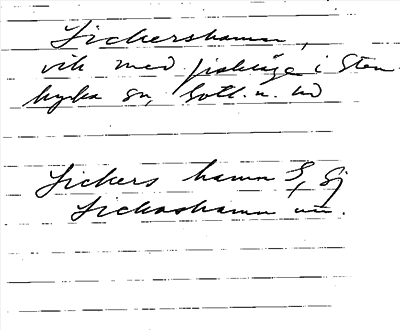 Sickershamn,
vik med fiskeläge i Sten-
kyrka sn, Gotl. n. hd
Sickers hamn S, Gj
Sickashamn um.